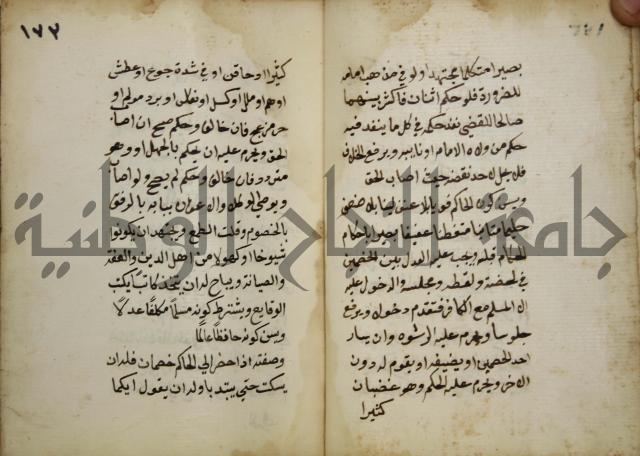 بصيرا متكلما مجتهدا ولو في مذهب امامه
للضرورة فلو حكم اثنان فاكثر بينهما
صالحا للقضي نفذ حكمه في كل ما ينفذ فيه
حكم من ولاه الامام او نايبه ويرفع الخلاف
فلا يحل لاحد نقضه حيث اصاب الحق
ويسن كون الحاكم قويا بلا عنف لينا بلا ضعف
حليما متانيا متفطنا عفيفا بصيرا باحكام
الحكام قبله ويجب عليه العدل بين الخصمين
في لحضه ولفظه ومجلسه والدخول عليه
الا المسلم مع الكافر فيقدم دخولا ويرفع
جلوسا ويحرم عليه الرشوه وان يسار
احد الخصمين او يضيفه او يقوم له دون
الاخر ويحرم عليه الحكم وهو غضبان
كثيرا
١٧٢
كثيرا او حاقن او في شدة جوع او عطش
او هم او ملل او كسل او نعاس او برد مولم او
حر مزعج فان خالف وحكم صح ان اصاب
الحق ويحرم عليه ان يحكم بالجهل او وهو
متردد فان خالف وحكم لم يصح ولو اصاب
ويوصي الوكلا والاعوان ببابه بالرفق
بالخصوم وقلت الطمع ويجتهد ان يكونوا
شيوخا او كهولا من اهل الدين والعفة
والصيانة ويباح له ان يتخذ كاتبا يكتب
الوقايع ويشترط كونه مسلما مكلفا عدلا
ويسن كونه حافظا عالما
وصفته اذا حضر الي الحاكم خصمان فله ان
يسكت حتي يبتدا وله ان يقول ايكما
جامعة النجاح الوطنية